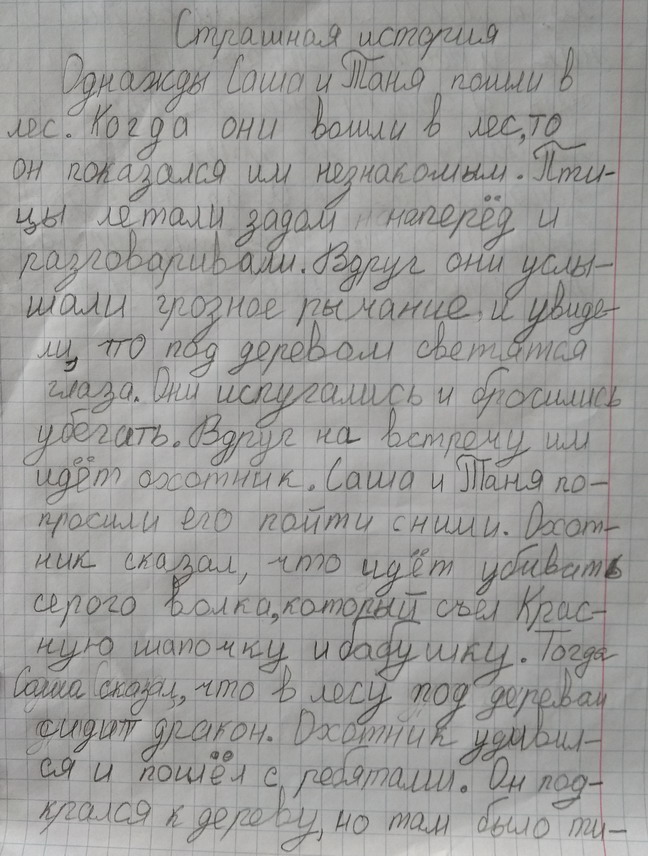 Страшная история
Однажды Саша и Таня пошли в
лес. Когда они вошли в лес, то
он показался им незнакомым. Пти-
цы летали задом наперёд и
разговаривали. Вдруг они услы-
шали грозное рычание и увиде-
ли, что под деревом светятся
глаза. Они испугались и бросились
убегать. Вдруг на встречу им
идёт охотник. Саша и Таня по-
просили его пойти с ними. Охот-
ник сказал, что идёт убивать
серого волка, который съел Крас-
ную шапочку и бабушку. Тогда
Саша сказал, что в лесу под деревом
сидит дракон. Охотник удивил-
ся и пошёл с ребятами. Он под-
крался к дереву, но там было ти-